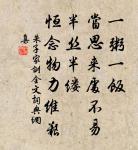 一粥一飯
當思來處不易
半絲半縷
恒念物力維艱
朱子家訓金文詞典網
集